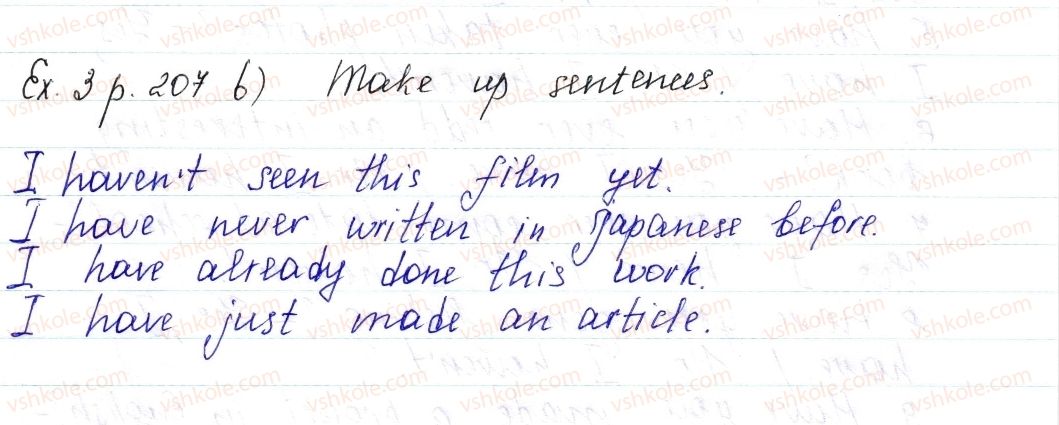 Ex. 3 p. 207 b) Make up sentences.
I haven't seen this film yet.
I have never written in Japanese before.
I have already done this work.
I have just made an article.